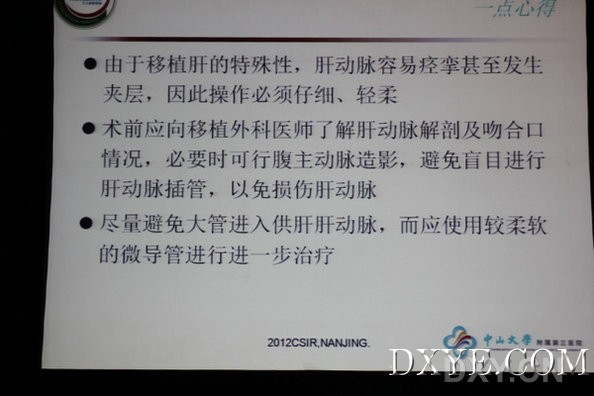 一点心得
●由于移植肝的特殊性，肝动脉容易痉挛甚至发生
夹层，因此操作必须仔细、轻柔
●术前应向移植外科医师了解肝动脉解剖及吻合口
情况，必要时可行腹主动脉造影，避免盲目进行
肝动脉插管，以免损伤肝动脉
●尽量避免大管进入供肝肝动脉，而应使用较柔软
的微导管进行进一步治疗
2012CSIR,NANJING.
中山大學 附属第三医院
DXYE.COM
DXY.CN